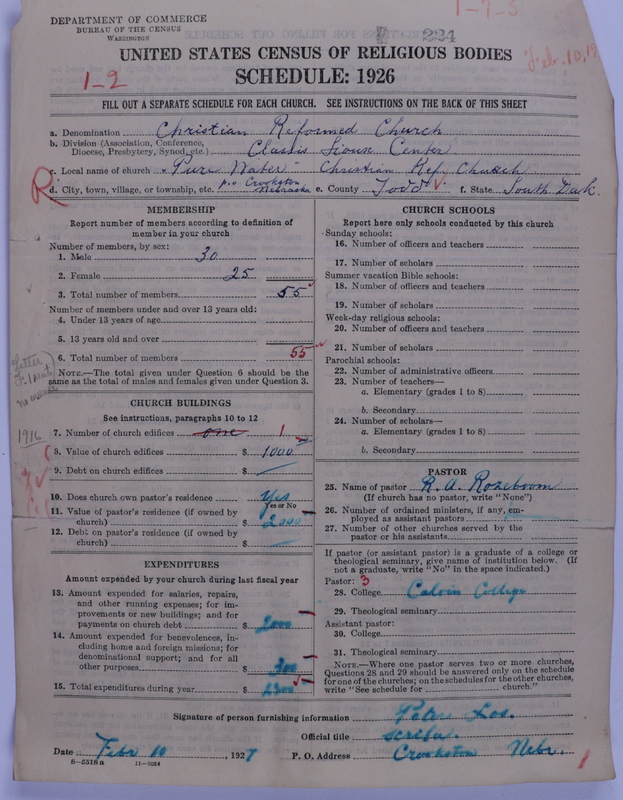 DEPARTMENT OF COMMERCE
BUREAU OF THE CENSUS
WASHINGTON
224
1-7-5
UNITED STATES CENSUS OF RELIGIOUS BODIES
Feb. 10, 19
1-2
SCHEDULE: 1926
FILL OUT A SEPARATE SCHEDULE FOR EACH CHURCH. SEE INSTRUCTIONS ON THE BACK OF THIS SHEET
a. Denomination Christian Reformed Church
b. Division (Association, Conference, Diocese, Presbytery, Synod, etc.) Classis Sioux Center
c. Local name of church Pure Water Christian Ref. Church
R
d. City, town, village, or township, etc. p.o Crookston Nebraska e. County Todd f. State South Dak.
MEMBERSHIP
Report number of members according to definition of
member in your church
Number of members, by sex:
1. Male 30
2. Female 25
3. Total number of members 55
Number of members under and over 13 years old:
4. Under 13 years of age
5. 13 years old and over
6. Total number of members 55
NOTE.—The total given under Question 6 should be the
same as the total of males and females given under Question 3.
CHURCH BUILDINGS
See instructions, paragraphs 10 to 12
1916
7. Number of church edifices one 1
8. Value of church edifices $ 1000
9. Debt on church edifices $
10. Does church own pastor's residence Yes
Yes or No
11. Value of pastor's residence (if owned by
church) $ 2000
12. Debt on pastor's residence (if owned by
church) $
EXPENDITURES
Amount expended by your church during last fiscal year
13. Amount expended for salaries, repairs,
and other running expenses; for im-
provements or new buildings; and for
payments on church debt $ 2000
14. Amount expended for benevolences, in-
cluding home and foreign missions; for
denominational support; and for all
other purposes $ 300
15. Total expenditures during year $ 2300
CHURCH SCHOOLS
Report here only schools conducted by this church
Sunday schools:
16. Number of officers and teachers
17. Number of scholars
Summer vacation Bible schools:
18. Number of officers and teachers
19. Number of scholars
Week-day religious schools:
20. Number of officers and teachers
21. Number of scholars
Parochial schools:
22. Number of administrative officers
23. Number of teachers—
a. Elementary (grades 1 to 8)
b. Secondary
24. Number of scholars—
a. Elementary (grades 1 to 8)
b. Secondary
PASTOR
25. Name of pastor R. A. Rozeboom
(If church has no pastor, write "None")
26. Number of ordained ministers, if any, em-
ployed as assistant pastors
27. Number of other churches served by the
pastor or his assistants
If pastor (or assistant pastor) is a graduate of a college or
theological seminary, give name of institution below. (If
not a graduate, write "No" in the space indicated.)
Pastor: 3
28. College Calvin College
29. Theological seminary
Assistant pastor:
30. College
31. Theological seminary
NOTE.—Where one pastor serves two or more churches,
Questions 28 and 29 should be answered only on the schedule
for one of the churches; on the schedules for the other churches,
write "See schedule for ______ church."
Signature of person furnishing information Peter Los.
Official title scriba.
Date Febr 10, 1927 P. O. Address Crookston Nebr.
8—5518a 11—9654
1